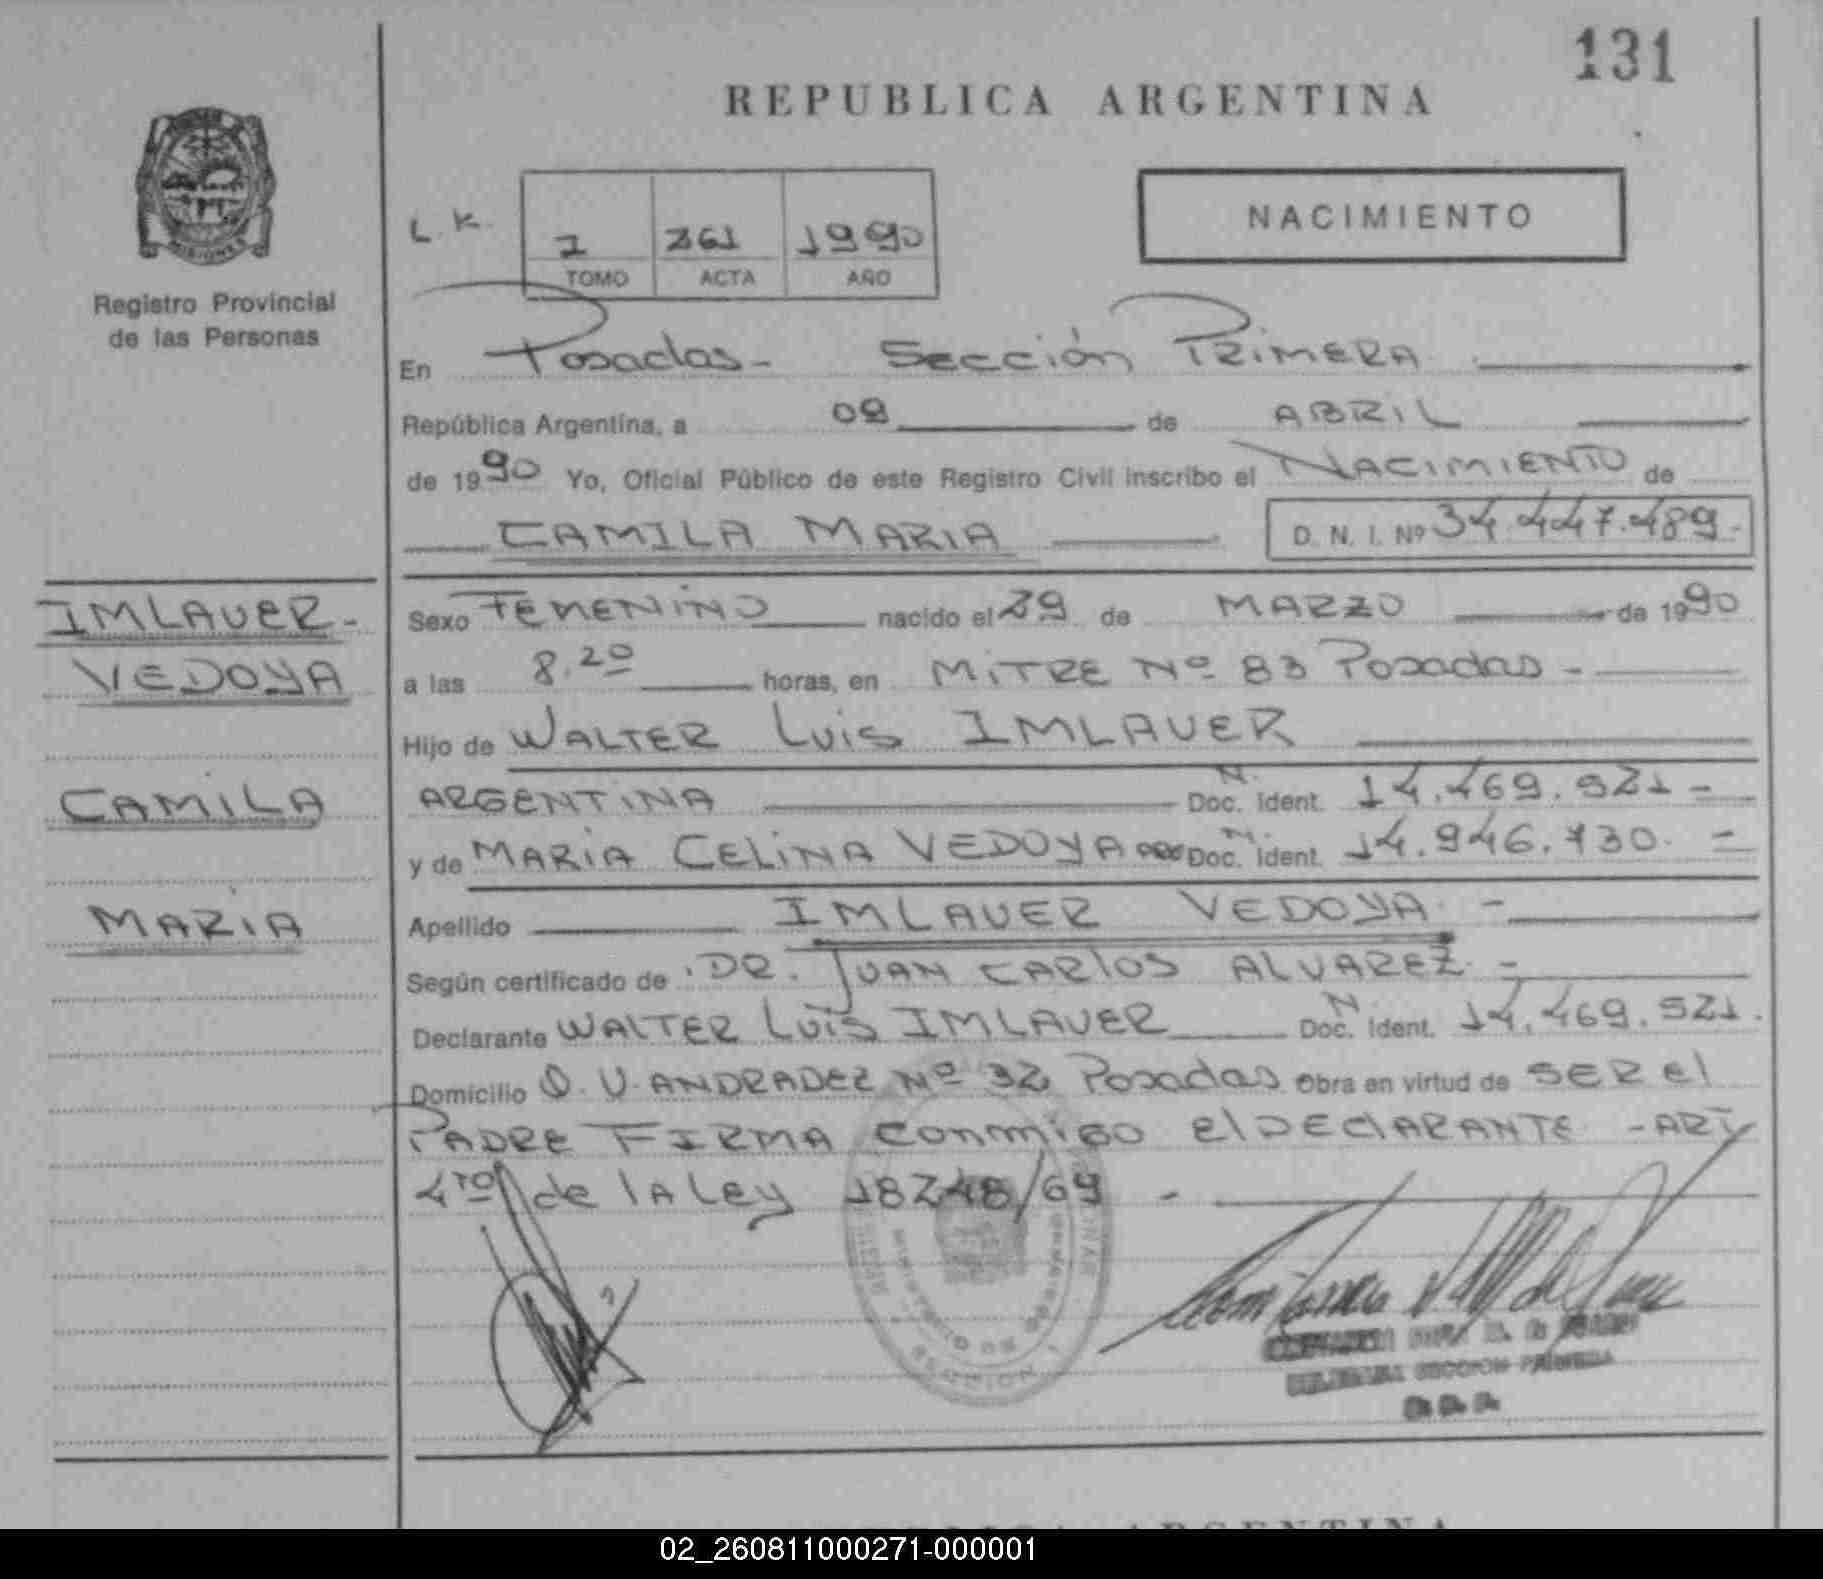 131
REPUBLICA ARGENTINA
MISIONES
Registro Provincial
de las Personas
L. K.
1 261 1990
TOMO ACTA AÑO
NACIMIENTO
En Posadas - Sección PRIMERA
República Argentina, a 09 de ABRIL
de 1990 Yo, Oficial Público de este Registro Civil inscribo el NACIMIENTO de
CAMILA MARIA D. N. I. Nº 34.447.489.-
IMLAUER-
VEDOYA
CAMILA
MARIA
Sexo FEMENINO nacido el 29 de MARZO de 1990
a las 8.20 horas, en MITRE Nº 83 Posadas -
Hijo de WALTER Luis IMLAUER
ARGENTINA N. Doc. Ident. 14.469.521 -
y de MARIA CELINA VEDOYA N. Doc. Ident. 14.946.730. -
Apellido IMLAUER VEDOYA -
Según certificado de DR. JUAN CARLOS ALVAREZ -
Declarante WALTER Luis IMLAUER N Doc. Ident. 14.469.521.
Domicilio O. V. ANDRADEZ Nº 32 Posadas Obra en virtud de SER El
PADRE FIRMA conmigo el DEClARANTE - ART
4TO de lA Ley 18248/69 -
MINISTERIO DE GOBIERNO
SECCION PRIMERA
REPUBLICA ARGENTINA
02_260811000271-000001